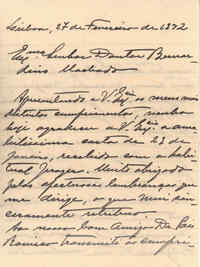 Lisboa, 27 de Fevereiro de 1892
Exmo Senhor Doutor Bernar
dino Machado
Apresentando a V. Exa os meus mais
distintos cumprimentos, venho
hoje agradecer a V. Exa a ama
bilissima carta de 23 de
Janeiro, recebida com a habi
tual Muito obrigado
pelas afectuosas lembranças que
me dirige, o que mui sin
ceramente retribuo
Ao nosso bom Amigo
Ramiro transmiti os cumpri